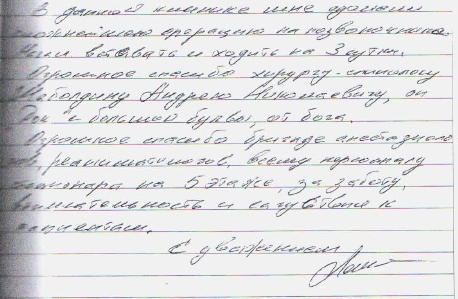 В данной клинике мне сделали
сложнейшую операцию на позвоночнике.
вставать и ходить на 3 сутки.
Огромное спасибо хирургу-
Андрею Николаевичу, он
Док с большой буквы, от бога.
Огромное спасибо бригаде анестезиоло
реаниматологов, всему персоналу
стационара на 5 этаже, за заботу,
внимательность и
пациентам.
С уважением